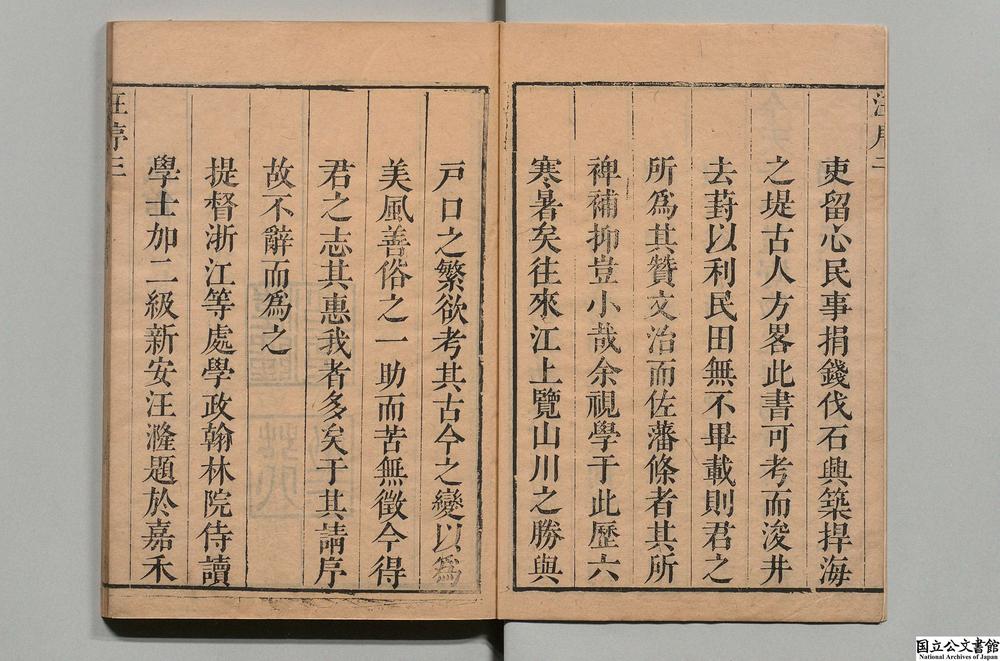 汪序二
吏留心民事捐錢伐石興築捍海
之堤古人方畧此書可考而浚井
去葑以利民田無不畢載則君之
所為其贊文治而佐藩條者其所
裨補抑豈小哉余視學于此歷六
寒暑矣往來江上覽山川之勝與
戸口之繁欲考其古今之變以為
美風善俗之一助而苦無徵今得
君之志其惠我者多矣于其請序
故不辭而為之
提督浙江等處學政翰林院侍讀
學士加二級新安汪漋題於嘉禾
汪序三
国立公文書館
National Archives of Japan